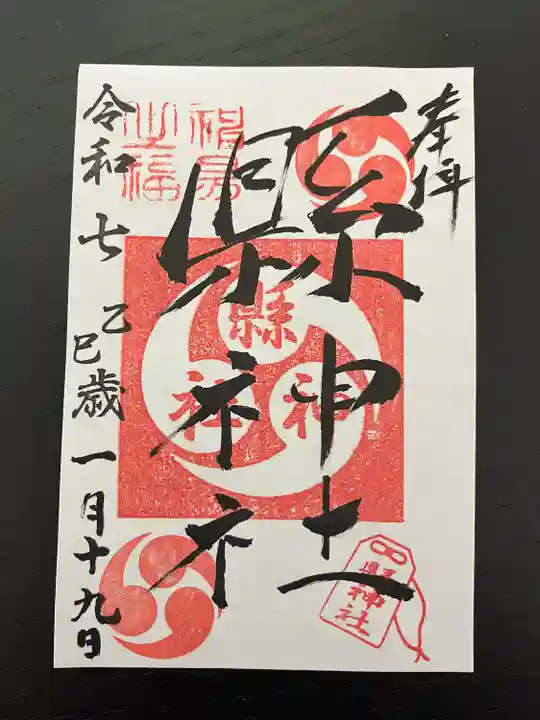 奉拝
縣神社
縣神社
縣神社
令和七乙巳歳一月十九日